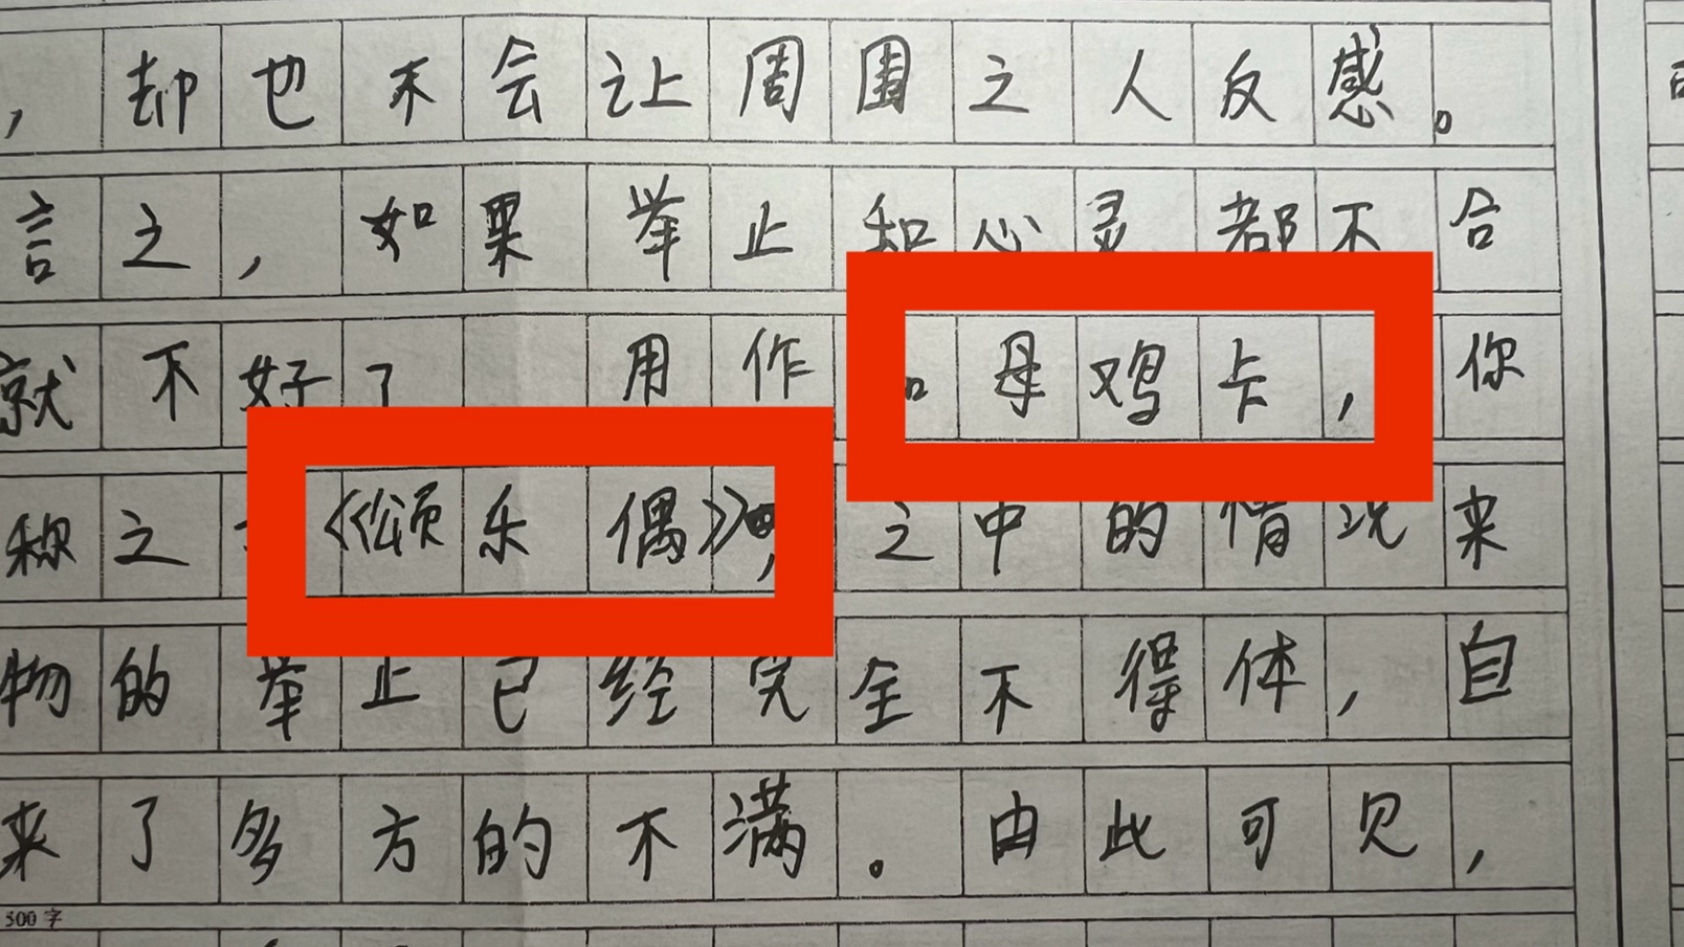 ，却也不会让周围之人反感。
言之，如果举止和心灵都不合
就不好了 用作 母鸡卡，你
称之 《颂乐偶》，之中的情况来
物的举止已经完全不得体，自
来了多方的不满。由此可见，
500字